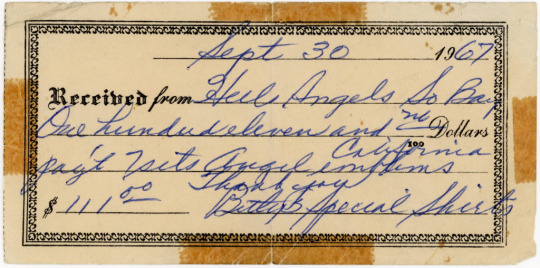 Sept 30 1967
Received from Hells Angels So Bay
One hundred eleven and no/100 Dollars
California
pay't 7 sets Angel emblems
Thank you
$ 111.00 Betty's Special Shirts